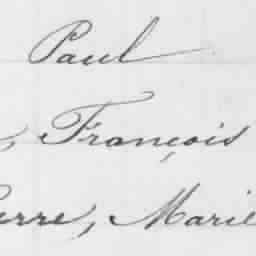 Paul
, François
ierre, Marie